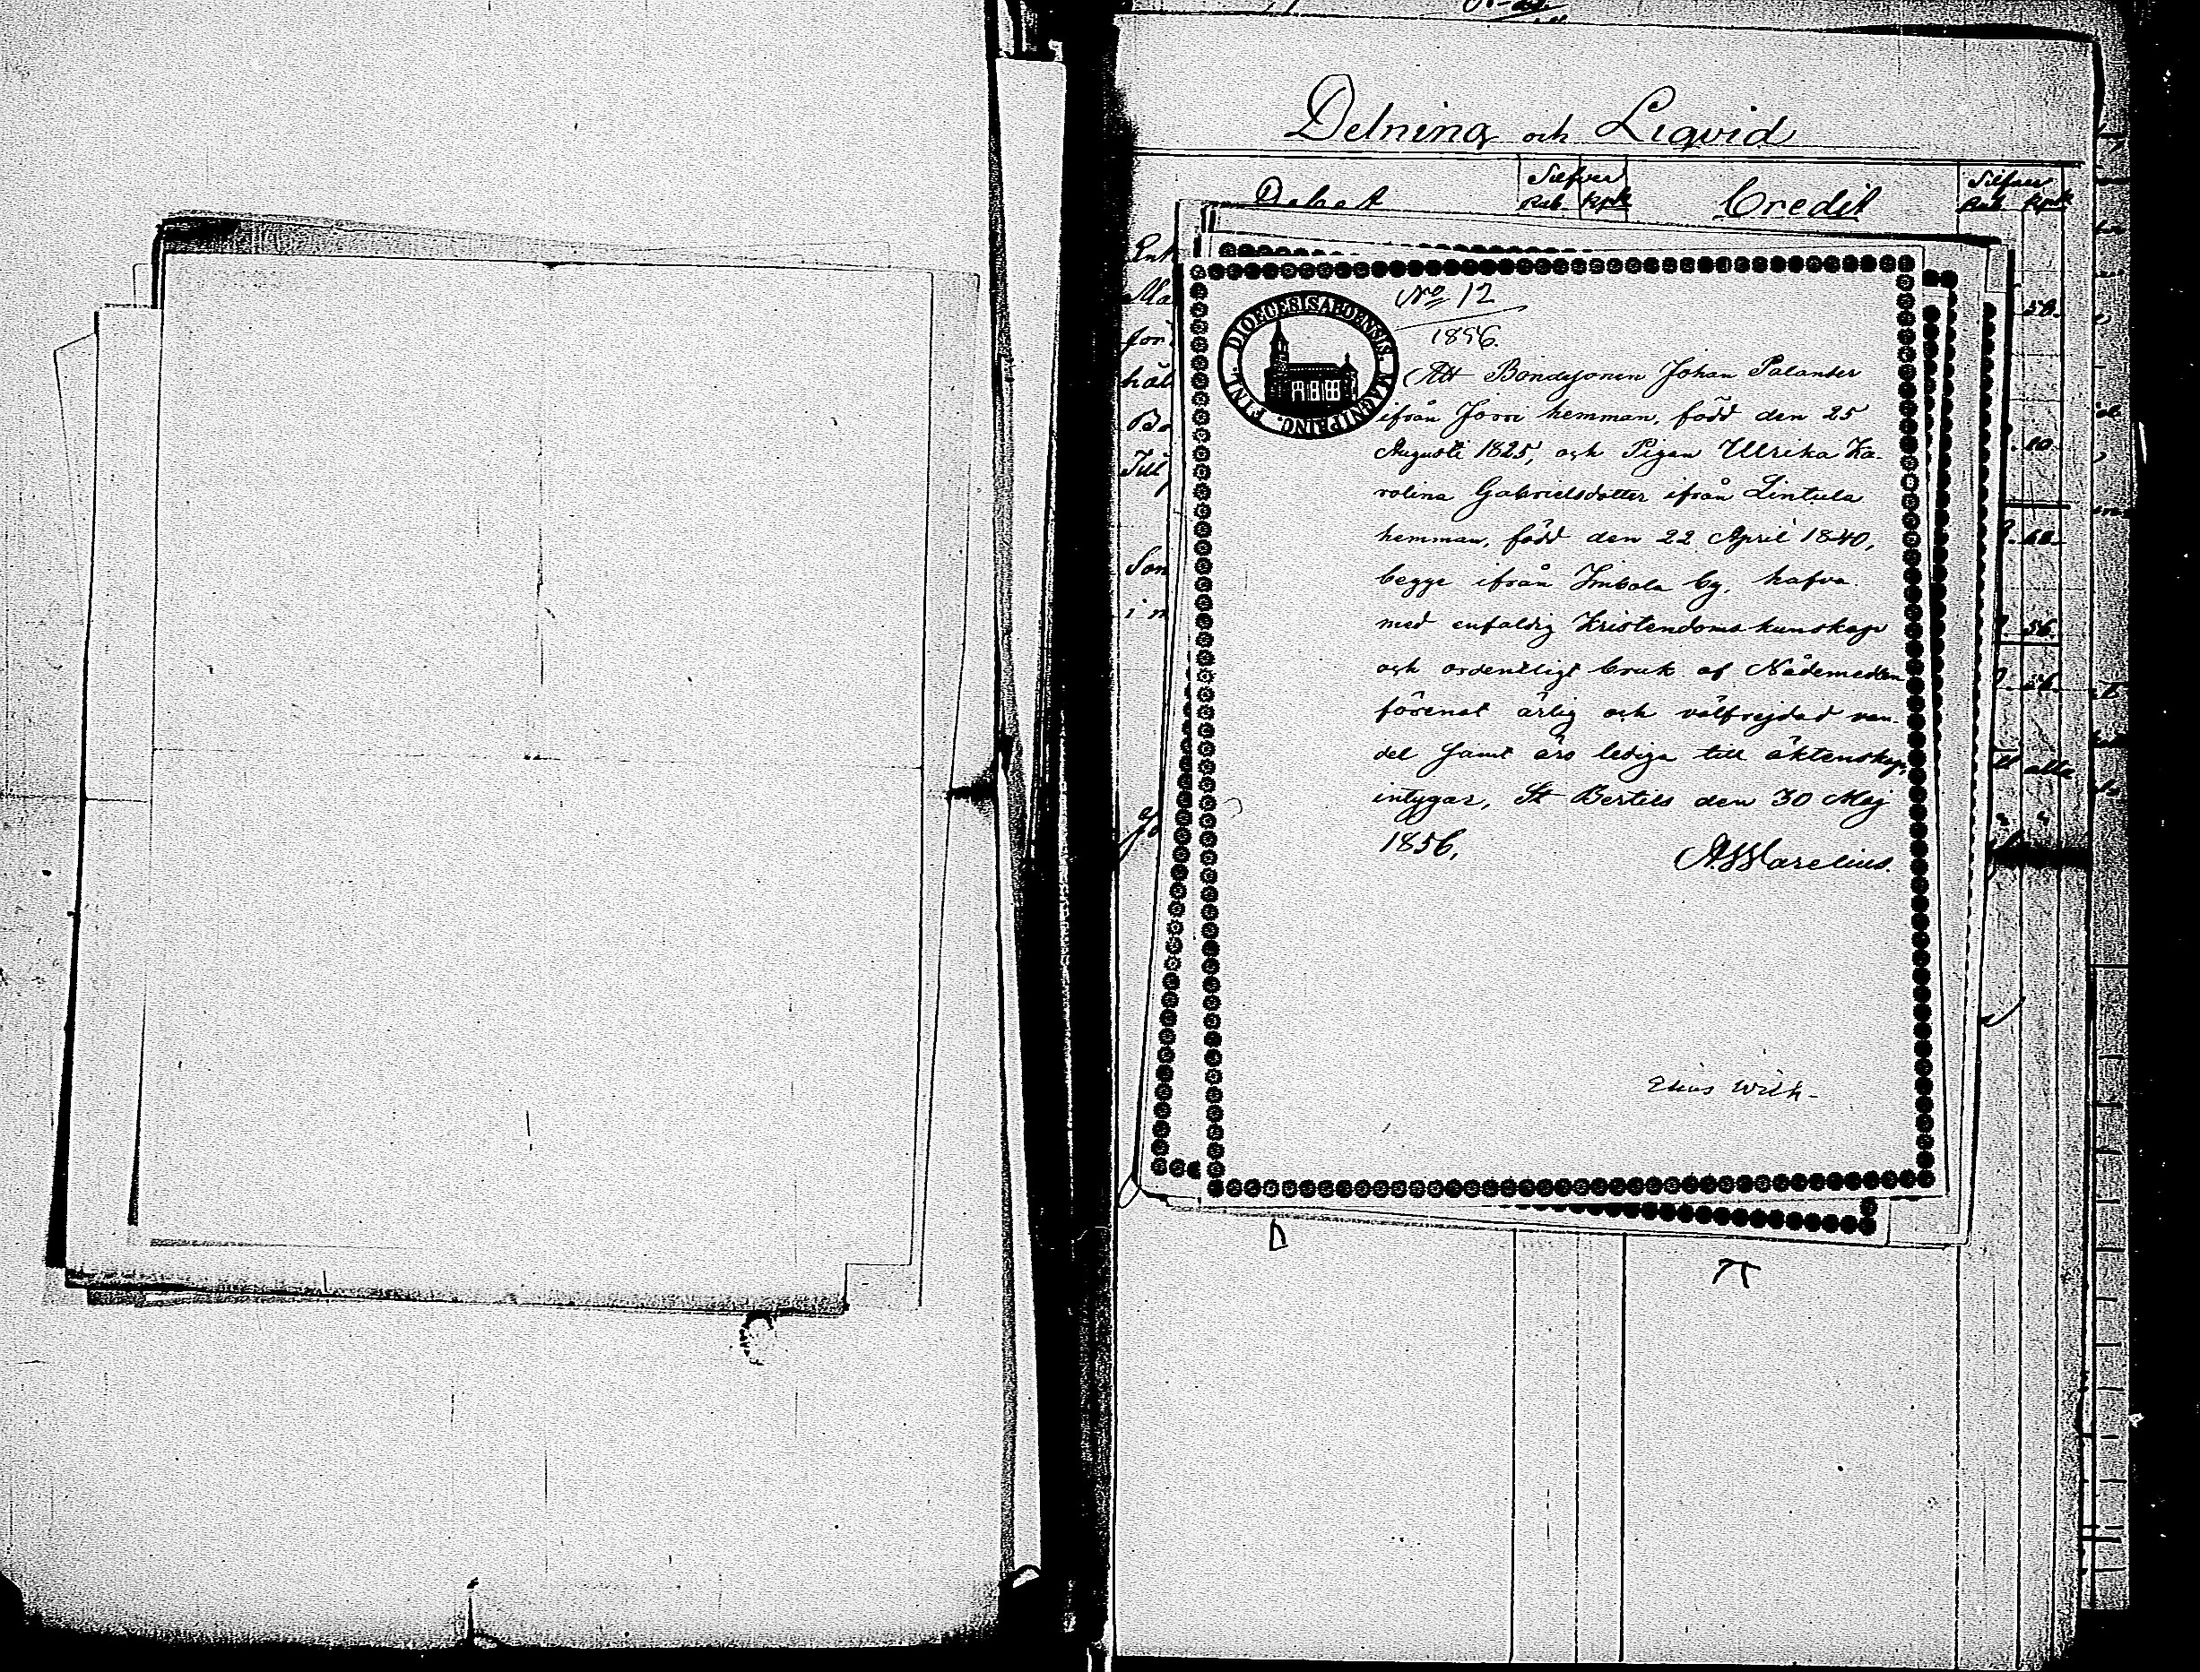 Delning och Liqvid
Debet
Silfver
Rub. Kopk
Credit
Silfver
Rub. Kopk
DIOECESIS ABOENSIS. MAGNI PRINC. FINL.
No 12
1856.
Att Bondesonen Johan Palander
ifrån Jorri hemman, född den 25
Augusti 1825, och Pigan Ullrika Ka-
rolina Gabrielsdotter ifrån Lintula
hemman, född den 22 April 1840,
begge ifrån Ihibola by, hafva
med enfaldig Kristendomskunskap
och ordentligt bruk af Nådemedlen
förenat ärlig och välfrejdad van-
del samt äro lediga till äktenskap,
intygar, St Bertils den 30 Maj
1856,
A Warelius.
Elias Wilh.